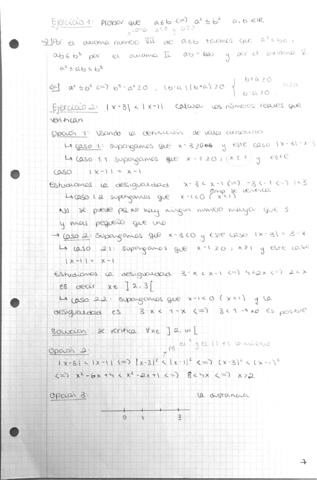 Ejercicio 1: Probar que a≤b <=> a²≤b² a, b ∈ ℝ
=>] Por el axioma número VII de a≤b tenemos que a²≤ba,
ab≤b² por el axioma II ab=ba y por el axioma V
a²≤ab≤b²
<=] a²≤b² <=> b²-a²≥0, (b-a)(b+a)≥0 { b+a≥0
b-a≥0
Ejercicio 2: |x-3|<|x-1| Calcula los números reales que
verifican
Opción 1: Usando la definición de valor absoluto
↳ Caso 1: Supongamos que x-3≥0 y este caso |x-3|=x-3
↳ Caso 1.1 Supongamos que x-1≥0, x≥1 y este
caso |x-1|=x-1
Estudiamos la desigualdad x-3<x-1 <=> -3<-1 <=> 1<3
↳ Caso 1.2 Supongamos que x-1<0 (x<1)
No se puede pues no hay ningún número mayor que 3
y más pequeño que uno
→ Caso 2: Supongamos que x-3<0 y este caso |x-3|=3-x
↳ Caso 2.1: Supongamos que x-1≥0, x≥1 y este caso
|x-1|=x-1
Estudiamos la desigualdad 3-x<x-1 <=> 4<2x <=> 2<x
es decir x∈ ]2,3[
↳ Caso 2.2: Supongamos que x-1<0 (x<1) y la
desigualdad es 3-x<1-x <=> 3<1 → no es posible
Solución: Se verifica ∀x∈ ]2,∞[
Opción 2:
|x-3|<|x-1| <=> |x-3|²<|x-1|² <=> (x-3)²<(x-1)²
<=> x²-6x+9<x²-2x+1 <=> 8<4x <=> x>2
Opción 3: la distancia
0 1 3